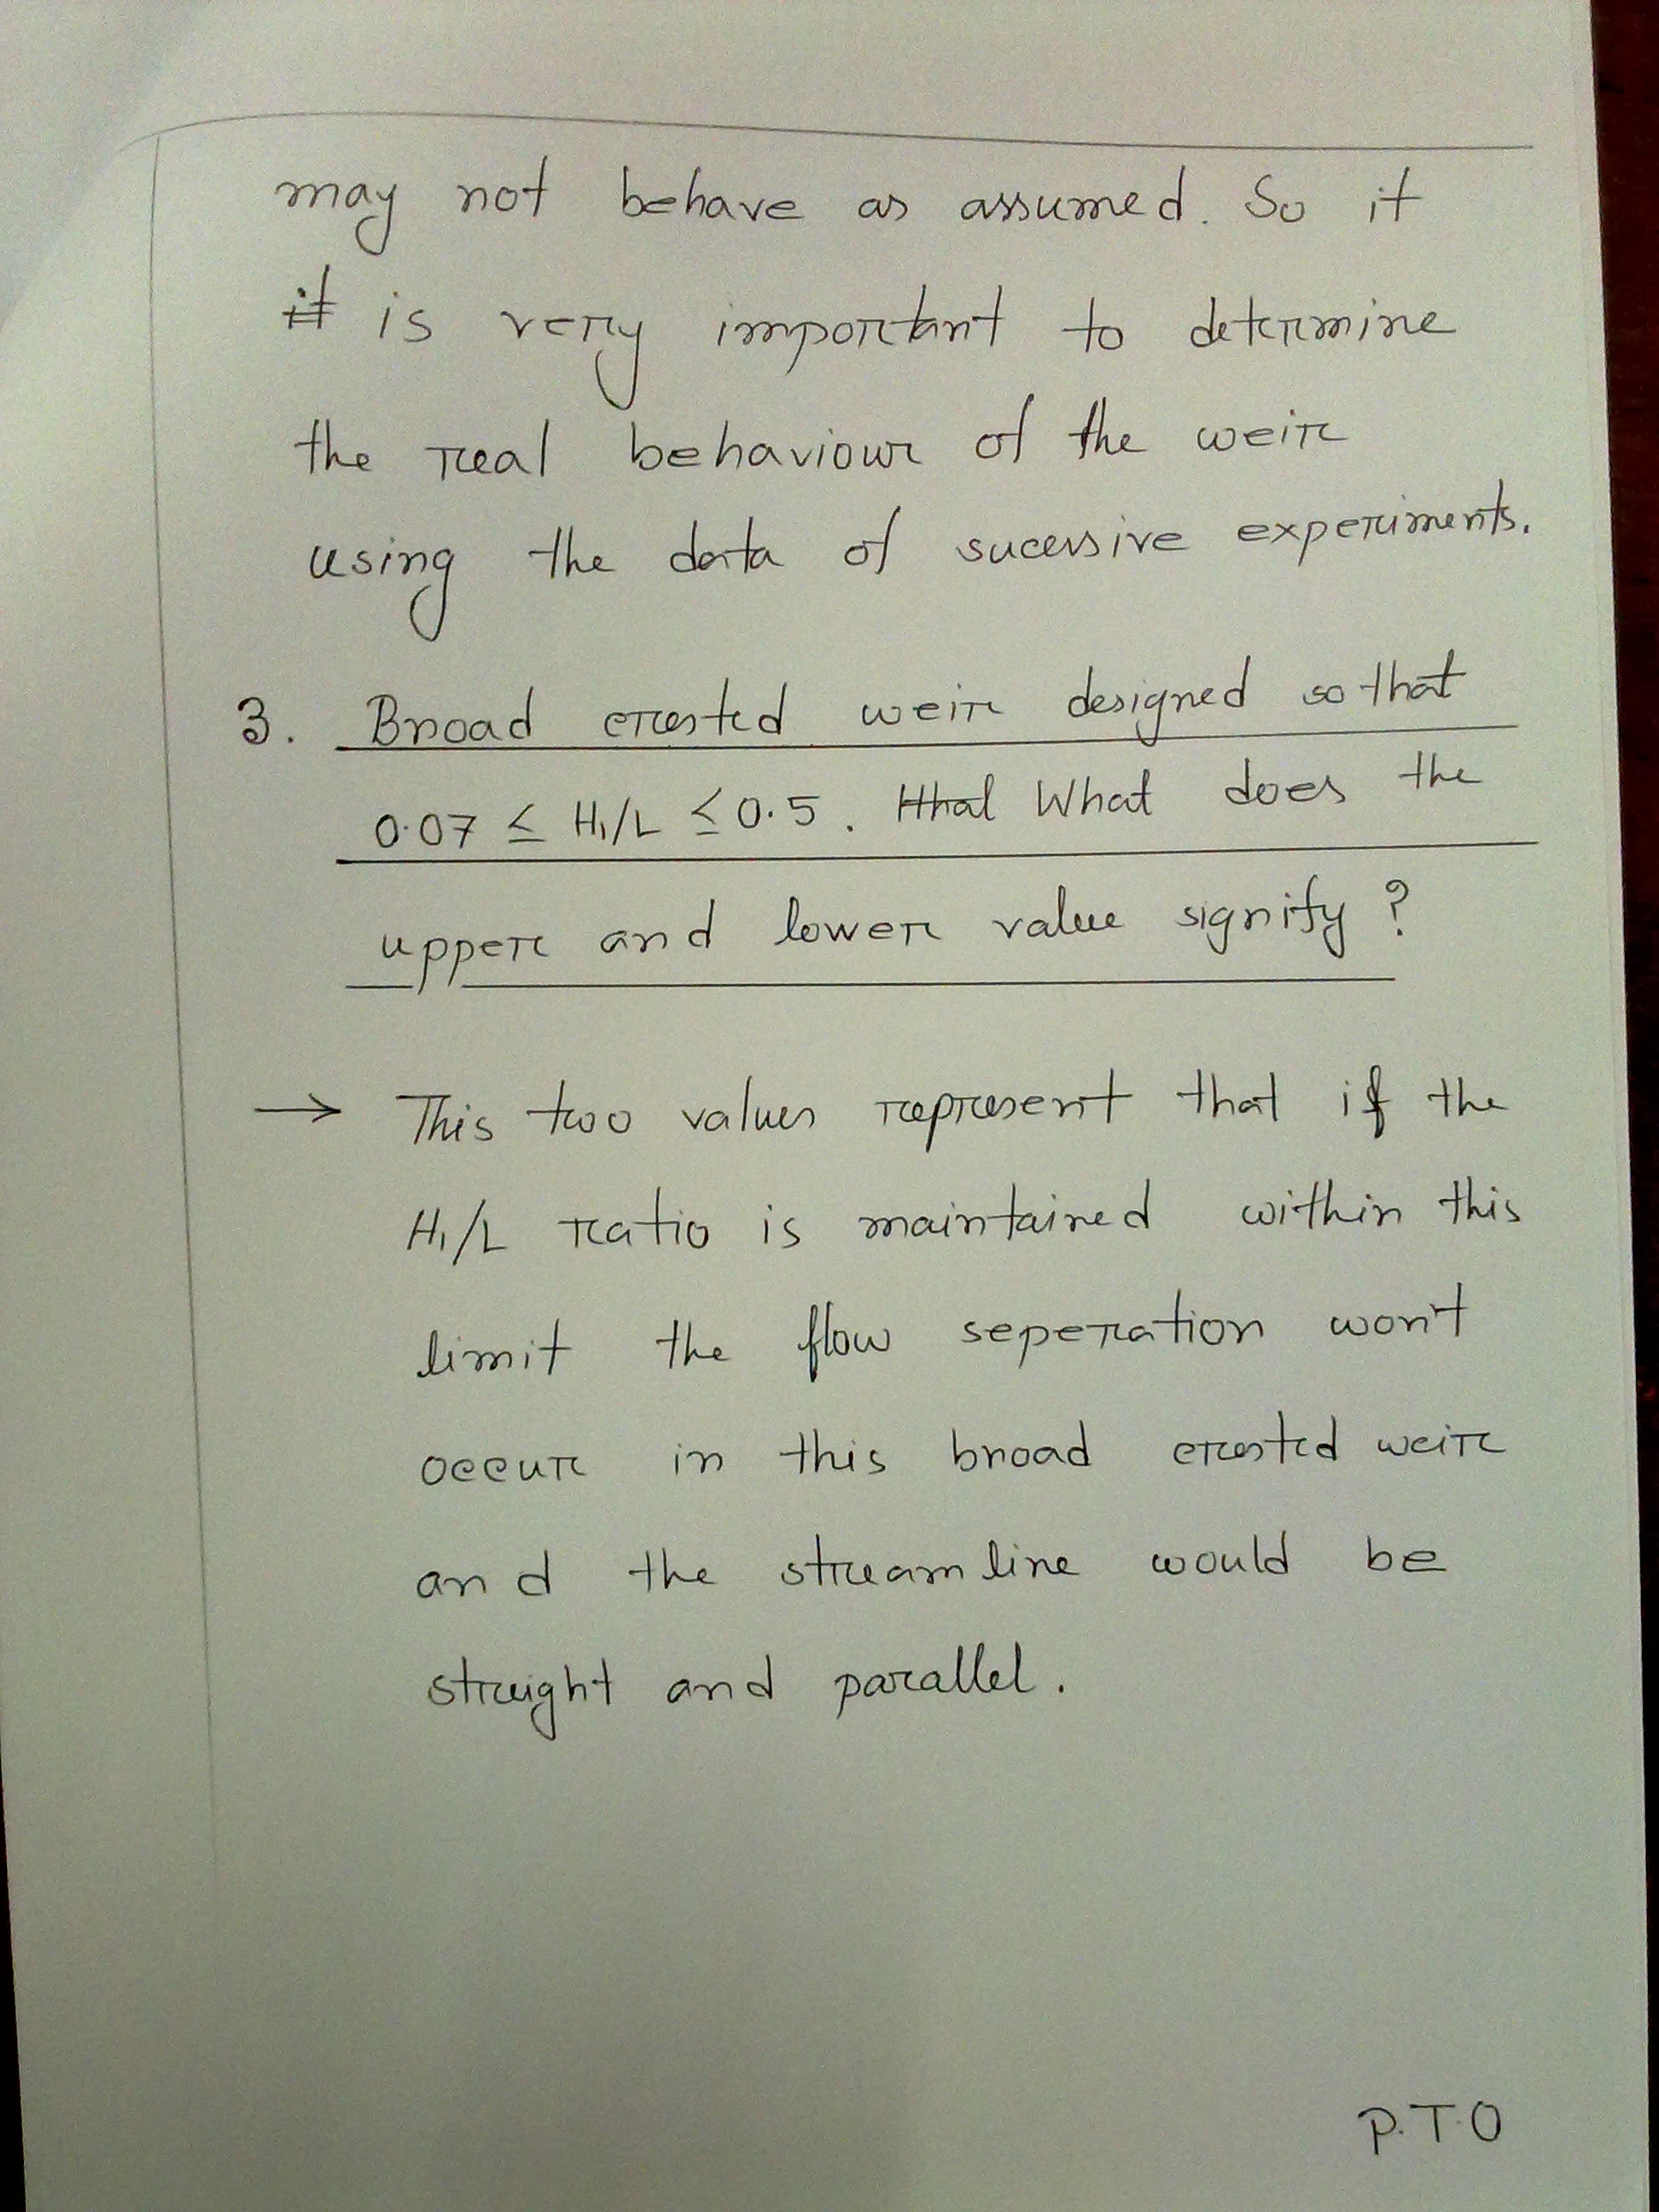 may not behave as assumed. So it
it is very important to determine
the real behaviour of the weir
using the data of sucessive experiments.
3. Broad crested weir designed so that
0.07 ≤ H₁/L ≤ 0.5. What does the
upper and lower value signify?
→ This two values represent that if the
H₁/L ratio is maintained within this
limit the flow seperation won't
occur in this broad crested weir
and the stream line would be
straight and parallel.
P.T.O